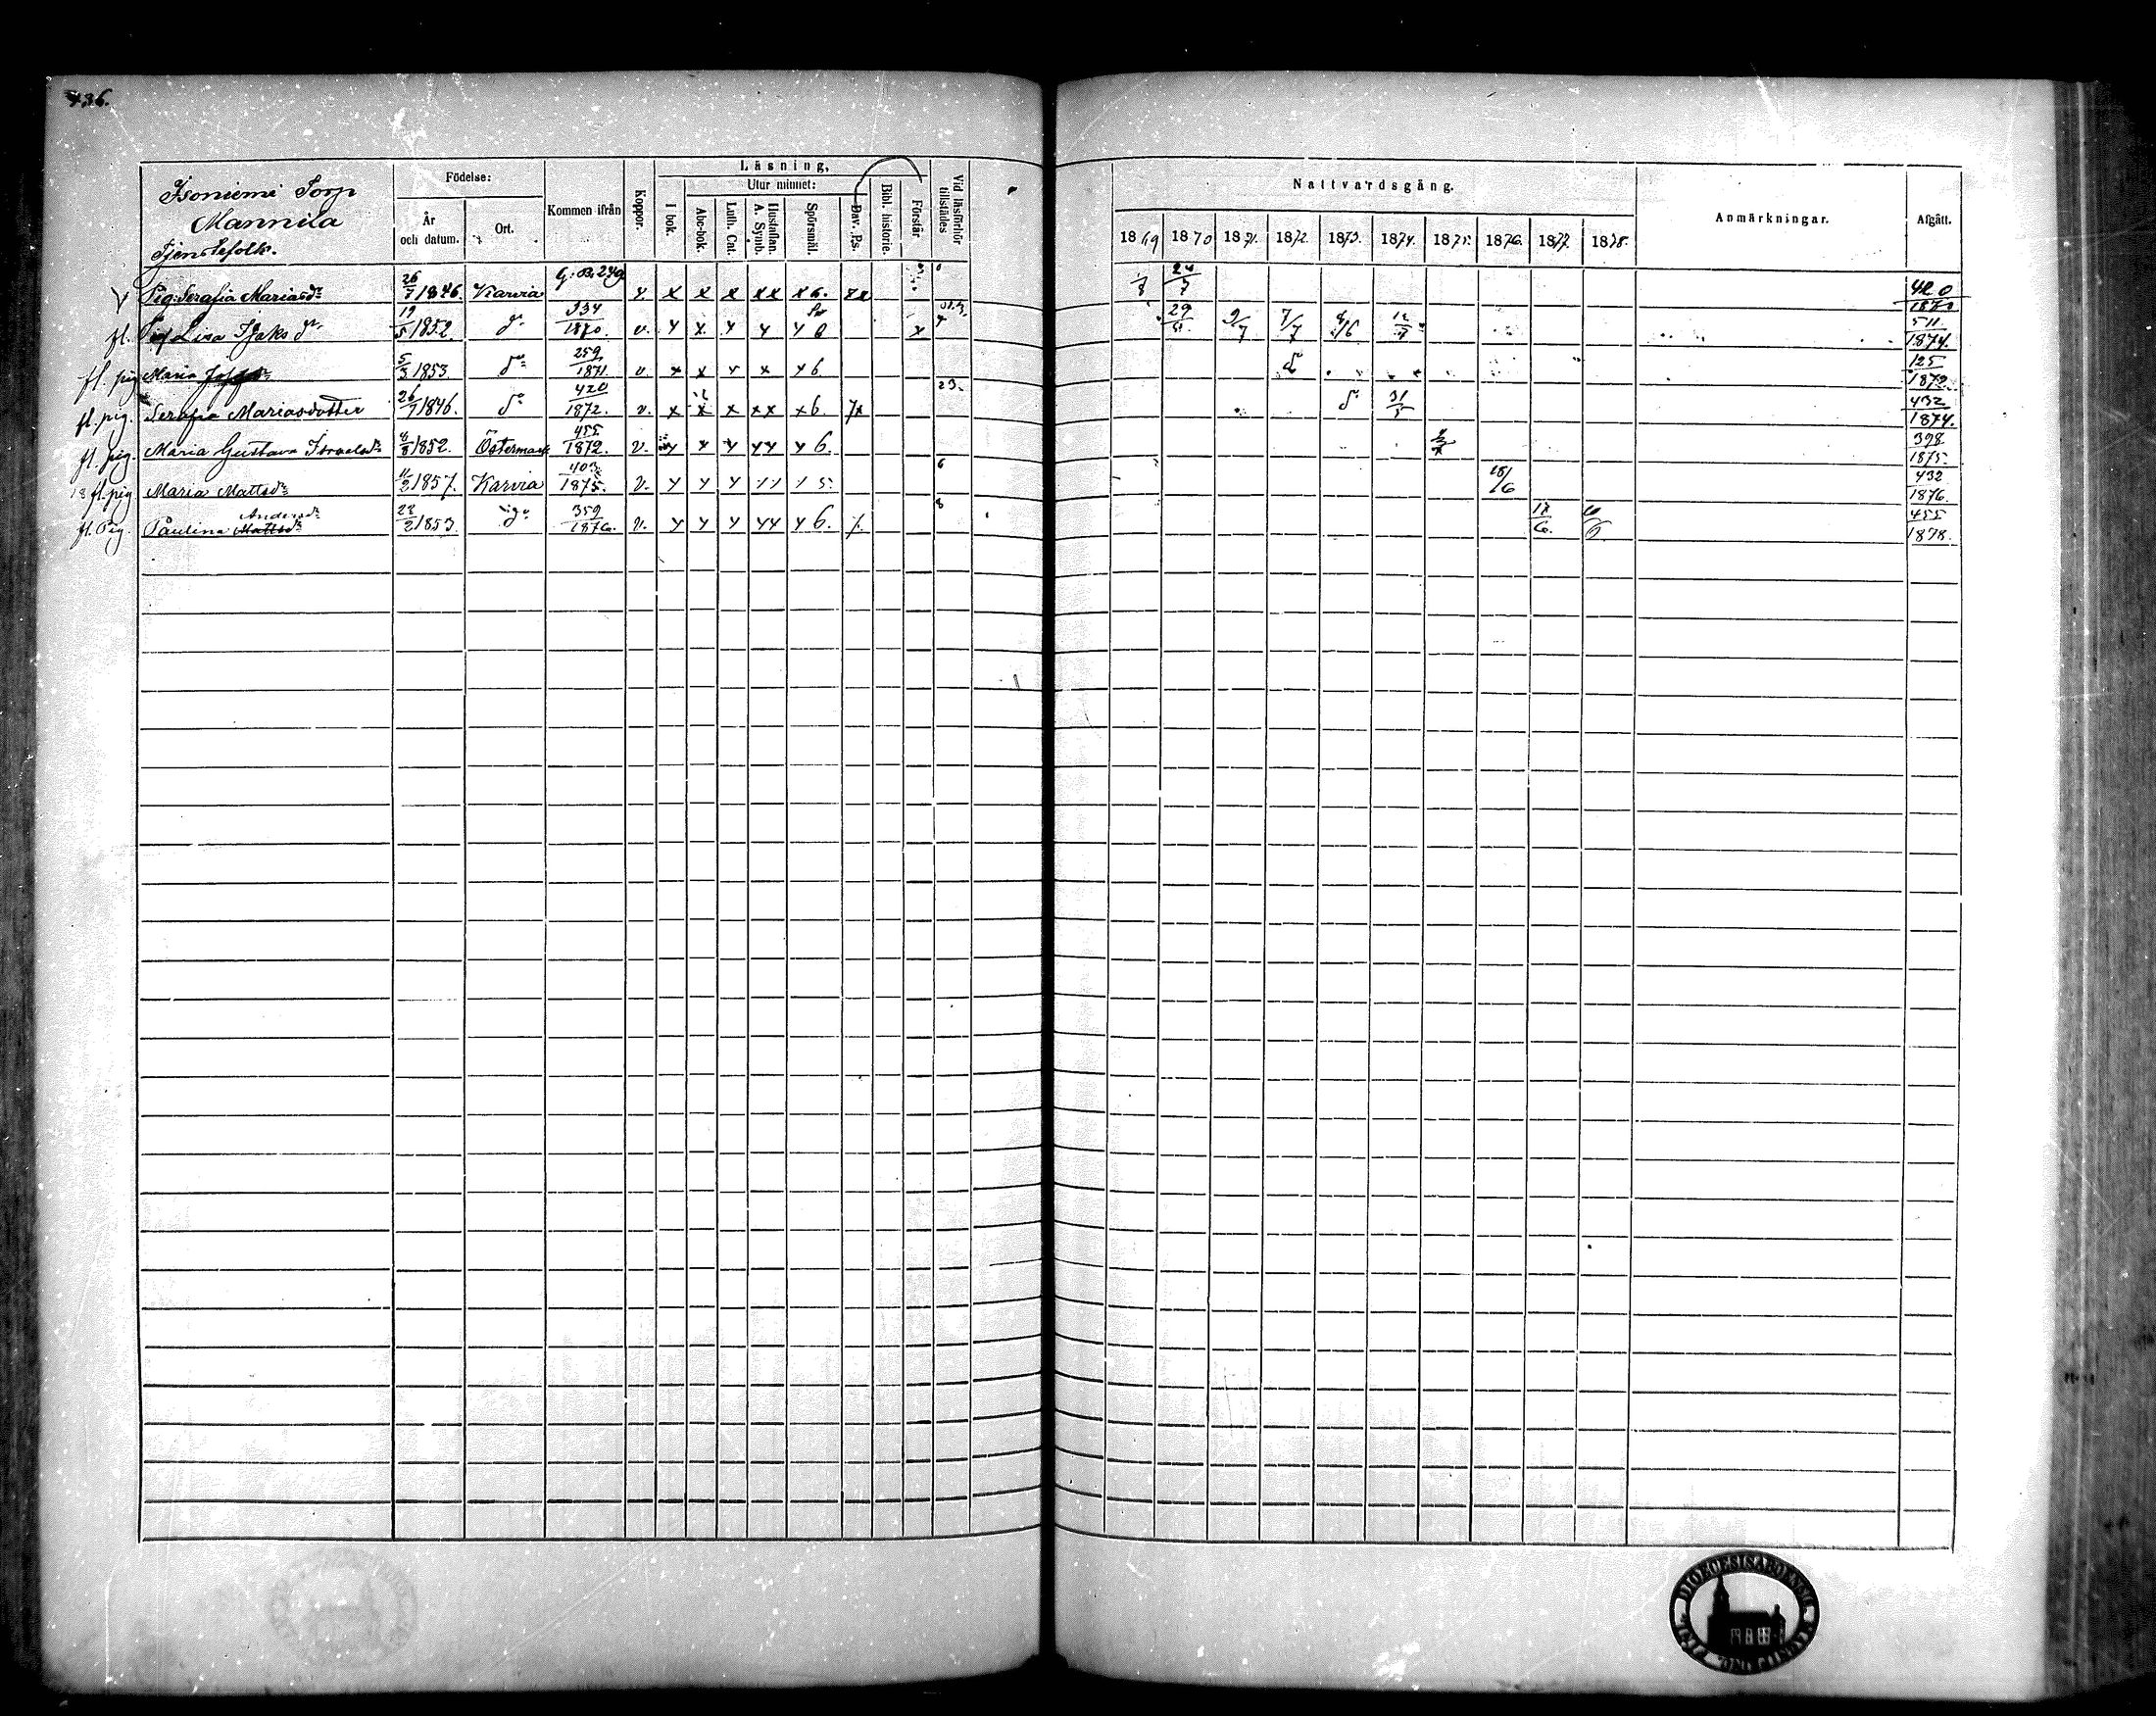 436.
Isoniemi Torp
Mannila
Tjenstefolk.
Födelse:
År och datum.
Ort.
Kommen ifrån
Koppor.
Läsning,
I bok.
Utur minnet:
Abc-bok.
Luth. Cat.
Hustaflan A. Symb.
Spörsmål.
Dav. Ps.
Bibl. historie.
Förstår
Vid läsförhör tillstädes
Nattvardsgång.
1869 1870 1871. 1872. 1873. 1874. 1875. 1876. 1877. 1878.
Anmärkningar.
Afgått.
Pig. Serafia Mariasdr 26/7 1846. Karvia G. B. 249 x x x x x x x 6. 7x 24/7 420/1872
fl. Lisa Isaks dr 19/5 1852. do 334/1870. v. y x y y y 6 x 29 9/7 7/7 8/6 511/1874.
fl. pig Maria 5/3 1853. do 259/1871 v. x x y x y 6 do 125/1872.
fl. pig. Serafia Mariasdotter 26/7 1846. do 420/1872. v. x x x x x x 6. 7x 23. do 31/5 432/1874.
fl. pig. Maria Gustava Israelsdr 8/8 1852. Östermark 455/1872. v. y y y y y y 6. 398/1875.
fl. pig Maria Mattsdr 11/2 1857. Karvia 403/1875. v. y y y 5. 6 18/6 432/1876.
fl. Pig. Paulina Mattsdr Andersdr 22/2 1853. do 359/1876. v. y y y y y y 6. 7. 8 17/6. 455/1878.
DIOECESIS ABOENSIS